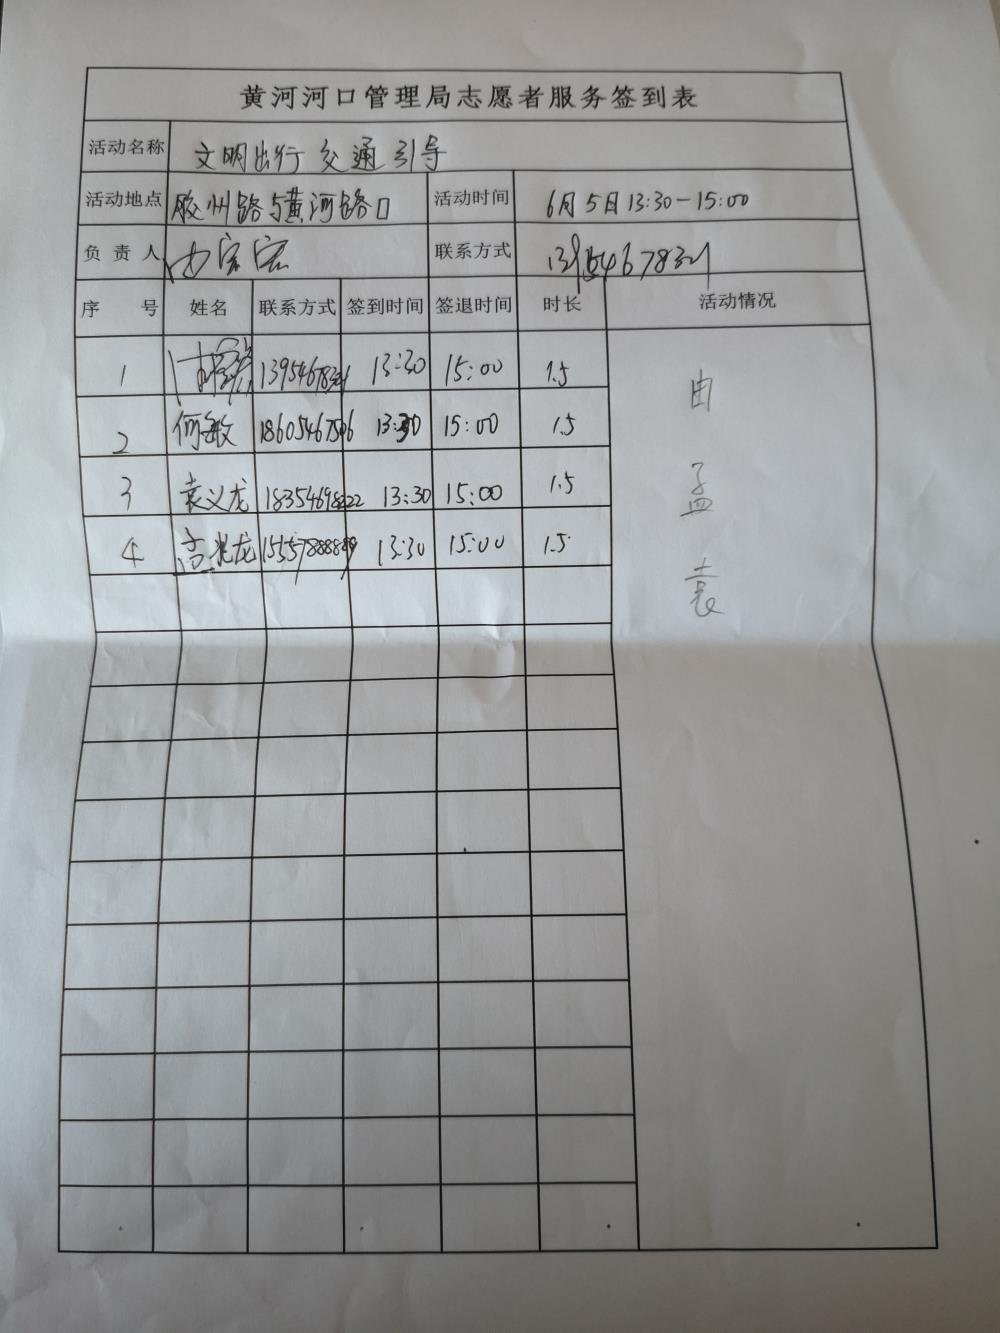 黄河河口管理局志愿者服务签到表
活动名称 文明出行 交通引导
活动地点 胶州路与黄河路口 活动时间 6月5日13:30-15:00
负责人 联系方式
序号 姓名 联系方式 签到时间 签退时间 时长 活动情况
1 13:30 15:00 1.5
2 何敏 13:30 15:00 1.5
3 袁义龙 13:30 15:00 1.5
4 龙 13:30 15:00 1.5
由
孟
袁